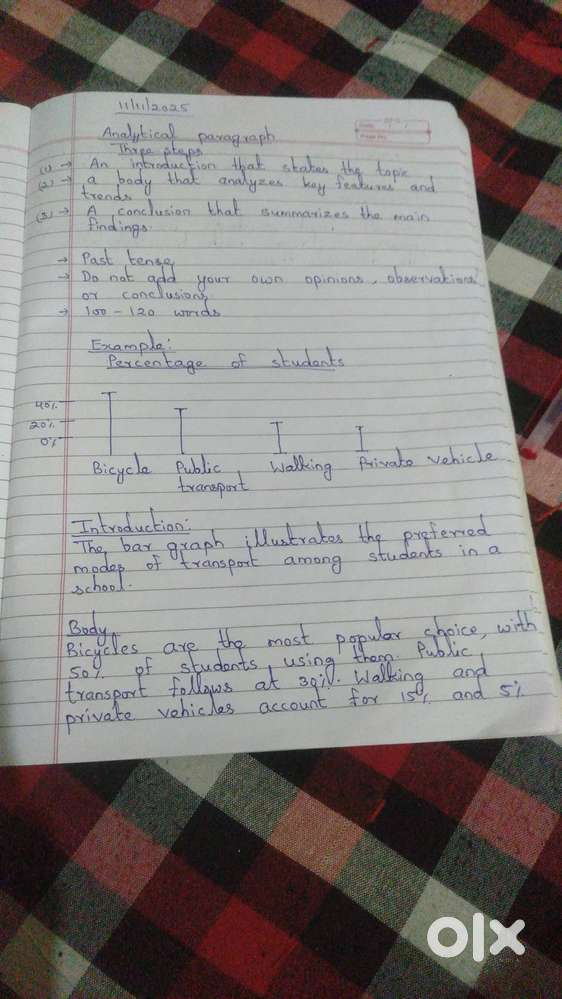 11/11/2025
Analytical paragraph
Three steps
(1) → An introduction that states the topic
(2) → a body that analyzes key features and
trends
(3) → A conclusion that summarizes the main
findings
→ Past tense
→ Do not add your own opinions, observations
or conclusions
→ 100-120 words
Example:
Percentage of students
40%
20%
0%
Bicycle Public Walking Private vehicle
transport
Introduction:
The bar graph illustrates the preferred
modes of transport among students in a
school.
Body
Bicycles are the most popular choice, with
50% of students using them. Public
transport follows at 30%. Walking and
private vehicles account for 15% and 5%
OLX